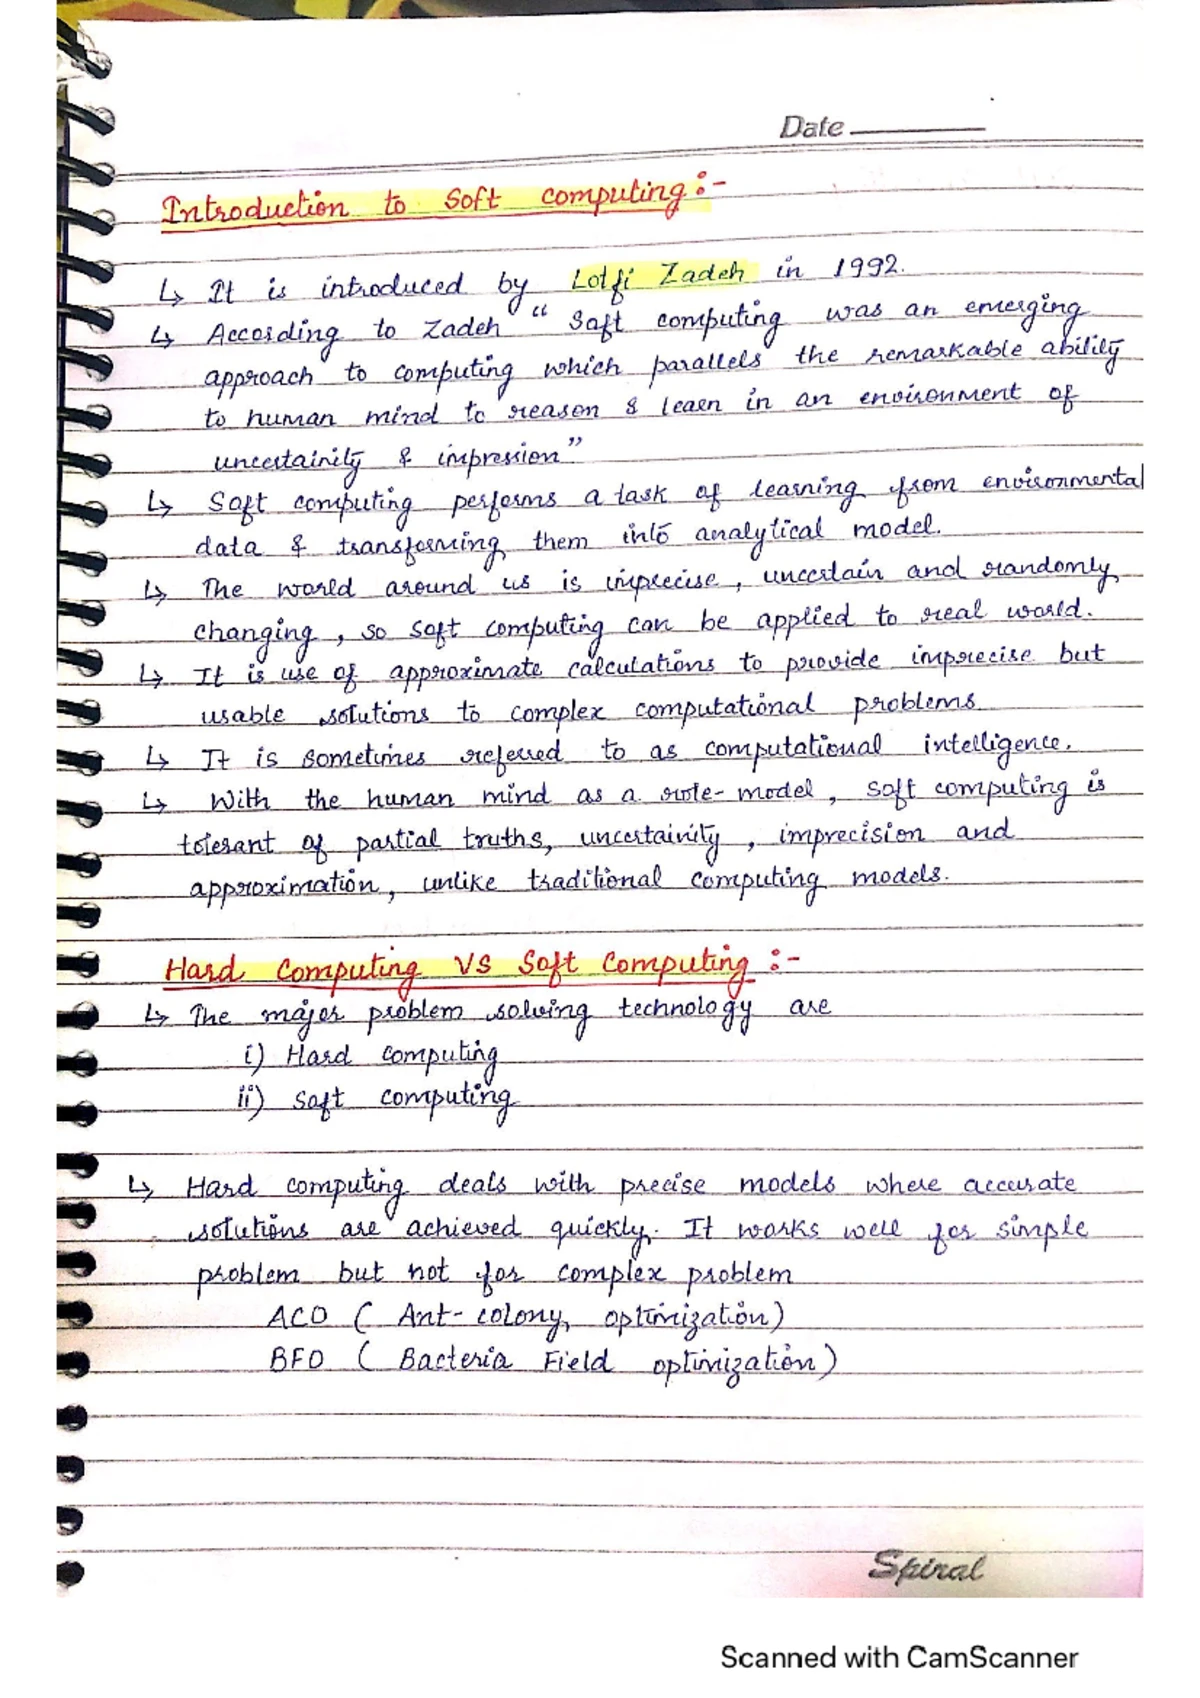 Date
Introduction to Soft computing :-
↳ It is introduced by Lotfi Zadeh in 1992.
↳ According to Zadeh " Soft computing was an emerging
approach to computing which parallels the remarkable ability
to human mind to reason & learn in an environment of
uncertainity & impression"
↳ Soft computing performs a task of learning from environmental
data & transforming them into analytical model.
↳ The world around us is imprecise, uncertain and randomly
changing, so soft computing can be applied to real world.
↳ It is use of approximate calculations to provide imprecise but
usable solutions to complex computational problems
↳ It is sometimes referred to as computational intelligence.
↳ With the human mind as a role-model, soft computing is
tolerant of partial truths, uncertainity, imprecision and
approximation, unlike traditional computing models.
Hard Computing VS Soft Computing :-
↳ The major problem solving technology are
i) Hard computing
ii) Soft computing
↳ Hard computing deals with precise models where accurate
solutions are achieved quickly. It works well for simple
problem but not for complex problem
ACO ( Ant-colony optimization)
BFO ( Bacteria Field optimization)
Spiral
Scanned with CamScanner